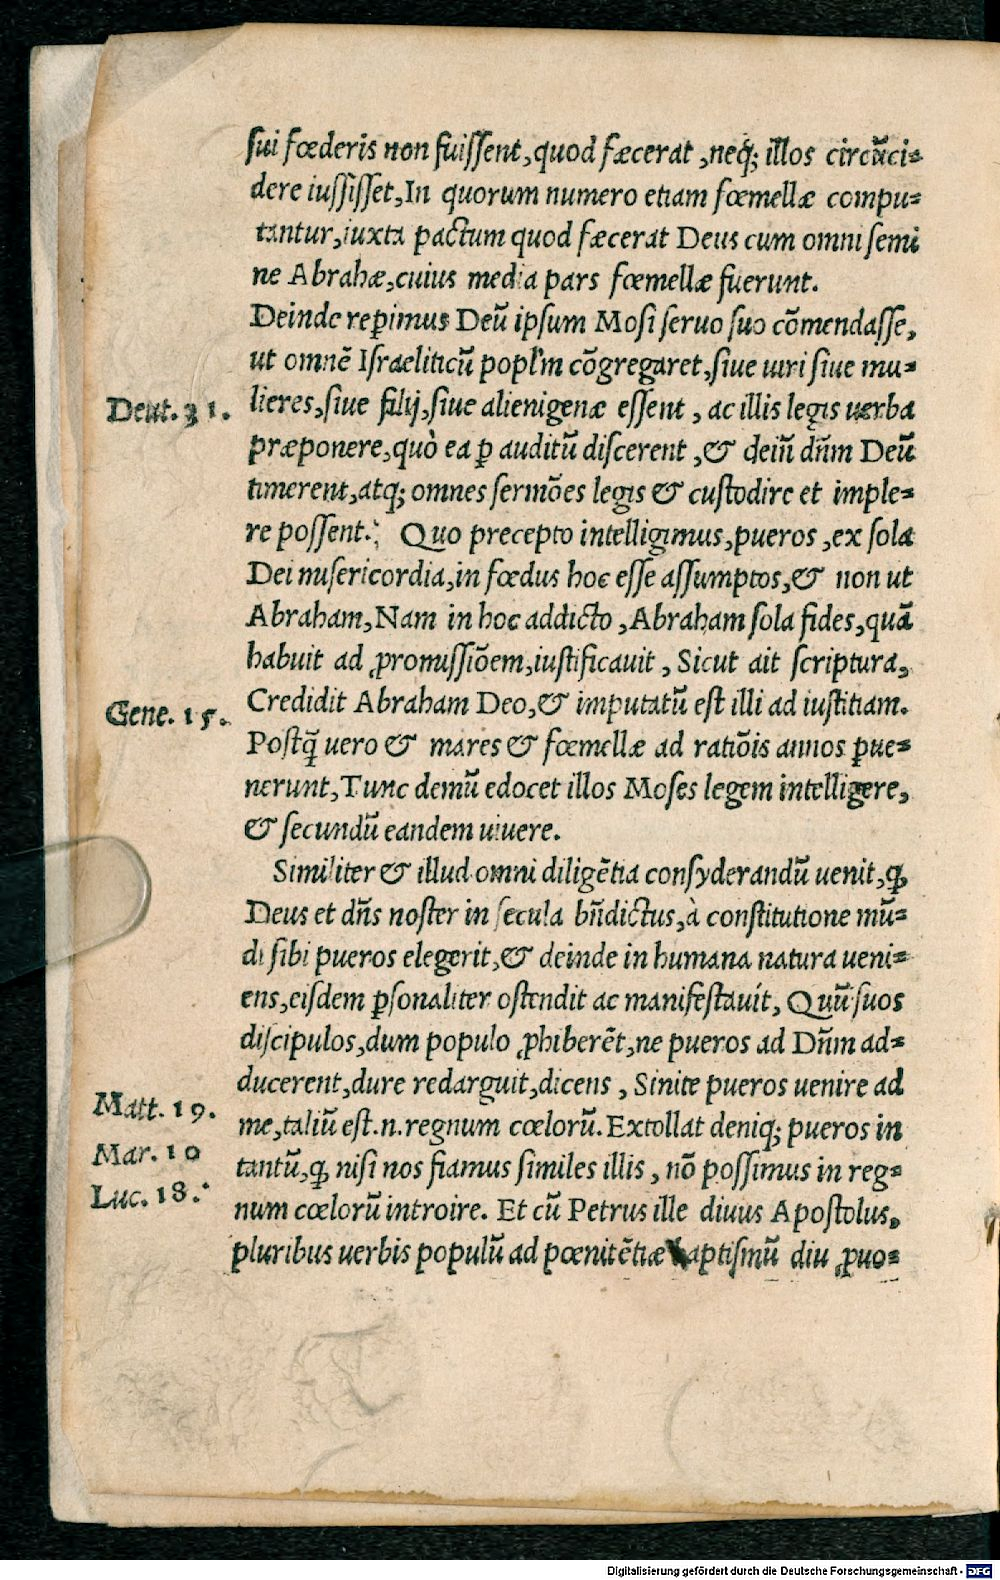 sui fœderis non fuiſſent, quod fæcerat, neq́; illos circũci⸗
dere iuſſiſſet, In quorum numero etiam fœmellæ compu⸗
tantur, iuxta pactum quod fæcerat Deus cum omni ſemi
ne Abrahæ, cuius media pars fœmellæ fuerunt.
Deinde reꝑimus Deũ ipſum Moſi ſeruo ſuo cõmendaſſe,
ut omnẽ Iſraeliticũ popl'm cõgregaret, ſiue uiri ſiue mu⸗
Deut. 31.
lieres, ſiue filij, ſiue alienigenæ eſſent, ac illis legis uerba
præponere, quò ea ꝑ auditũ diſcerent, & deiñ dñm Deũ
timerent, atq; omnes ſermões legis & cuſtodire et imple⸗
re poſſent. Quo precepto intelligimus, pueros, ex ſola
Dei miſericordia, in fœdus hoc eſſe aſſumptos, & non ut
Abraham, Nam in hoc addicto, Abraham ſola fides, quã
habuit ad ꝓmiſſiõem, iuſtificauit, Sicut ait ſcriptura,
Gene. 15.
Credidit Abraham Deo, & imputatũ eſt illi ad iuſtitiam.
Poſtq̃ uero & mares & fœmellæ ad ratiõis annos ꝑue⸗
nerunt, Tunc demũ edocet illos Moſes legem intelligere,
& ſecundũ eandem uiuere.
Similiter & illud omni diligẽtia conſyderandũ uenit, ꝙ
Deus et dñs noſter in ſecula bñdictus, à conſtitutione mũ⸗
di ſibi pueros elegerit, & deinde in humana natura ueni⸗
ens, eiſdem ꝑſonaliter oſtendit ac manifeſtauit, Quũ ſuos
diſcipulos, dum populo ꝓhiberẽt, ne pueros ad Dñm ad⸗
ducerent, dure redarguit, dicens, Sinite pueros uenire ad
Matt. 19.
me, taliũ eſt .n. regnum cœlorũ. Extollat deniq; pueros in
Mar. 10
tantũ, ꝙ niſi nos fiamus ſimiles illis, nõ poſſimus in reg⸗
Luc. 18.
num cœlorũ introire. Et cũ Petrus ille diuus Apoſtolus,
pluribus uerbis populũ ad pœnitẽtiæ baptiſmũ diu ꝓuo⸗
Digitalisierung gefördert durch die Deutsche Forschungsgemeinschaft - DFG